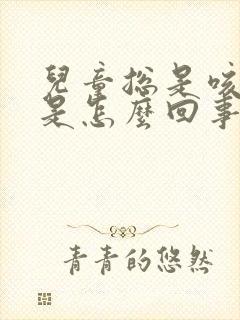 兒童総是咳
是怎麼回事
青青的悠然